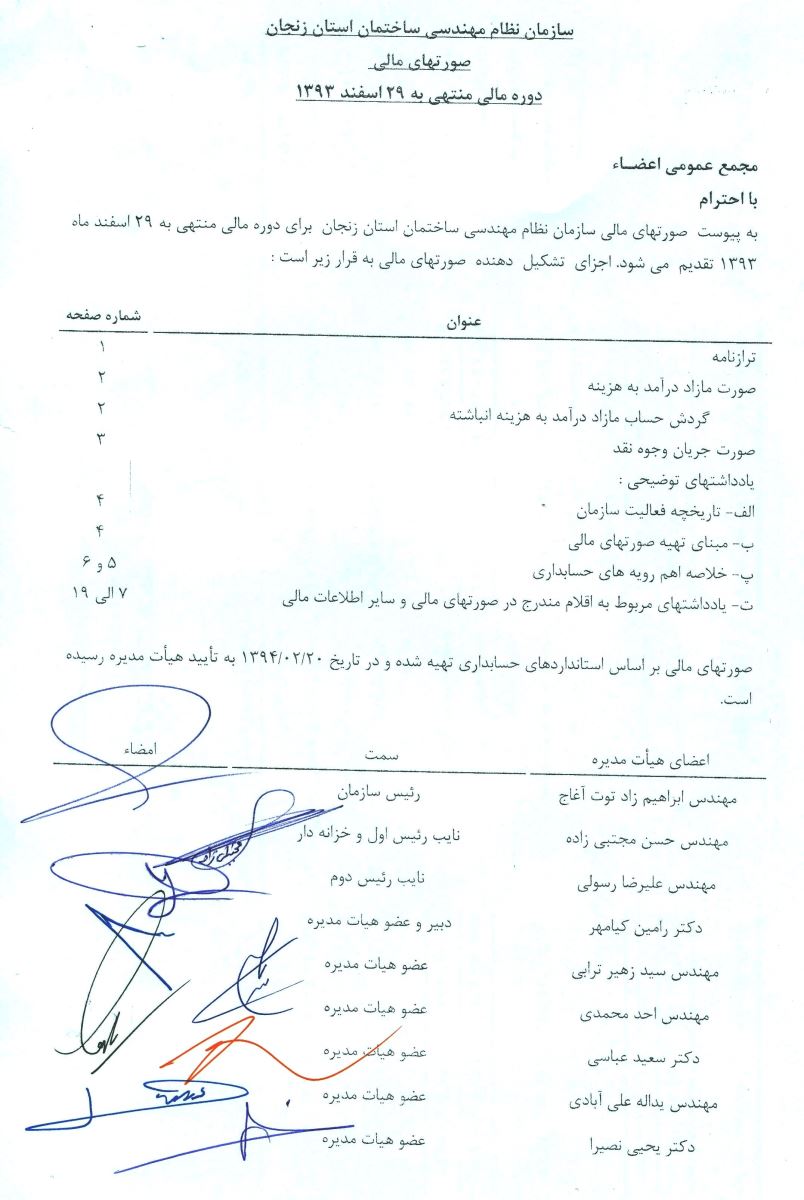 سازمان نظام مهندسی ساختمان استان زنجان
صورتهای مالی
دوره مالی منتهی به ۲۹ اسفند ۱۳۹۳
مجمع عمومی اعضـاء
با احترام
به پیوست صورتهای مالی سازمان نظام مهندسی ساختمان استان زنجان برای دوره مالی منتهی به ۲۹ اسفند ماه
۱۳۹۳ تقدیم می شود. اجزای تشکیل دهنده صورتهای مالی به قرار زیر است :
عنوان شماره صفحه
ترازنامه ۱
صورت مازاد درآمد به هزینه ۲
گردش حساب مازاد درآمد به هزینه انباشته ۲
صورت جریان وجوه نقد ۳
یادداشتهای توضیحی :
الف- تاریخچه فعالیت سازمان ۴
ب- مبنای تهیه صورتهای مالی ۴
پ- خلاصه اهم رویه های حسابداری ۵ و ۶
ت- یادداشتهای مربوط به اقلام مندرج در صورتهای مالی و سایر اطلاعات مالی ۷ الی ۱۹
صورتهای مالی بر اساس استانداردهای حسابداری تهیه شده و در تاریخ ۱۳۹۴/۰۲/۲۰ به تأیید هیأت مدیره رسیده
است.
اعضای هیأت مدیره سمت امضاء
مهندس ابراهیم زاد توت آغاج رئیس سازمان
مهندس حسن مجتبی زاده نایب رئیس اول و خزانه دار
مهندس علیرضا رسولی نایب رئیس دوم
دکتر رامین کیامهر دبیر و عضو هیات مدیره
مهندس سید زهیر ترابی عضو هیات مدیره
مهندس احد محمدی عضو هیات مدیره
دکتر سعید عباسی عضو هیات مدیره
مهندس یداله علی آبادی عضو هیات مدیره
دکتر یحیی نصیرا عضو هیات مدیره